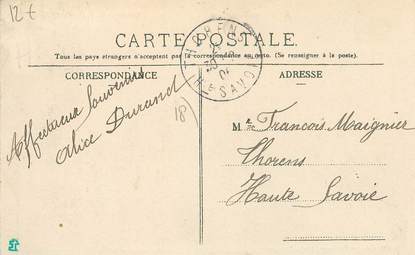 12€
CARTE POSTALE.
Tous les pays étrangers n'acceptent pas la correspondance au recto. (Se renseigner à la poste).
THORENS
Hte SAVOIE
CORRESPONDANCE
ADRESSE
Affectueux Souvenir
Alice Durand
18
M Francois Maignier
Thorens
Haute Savoie